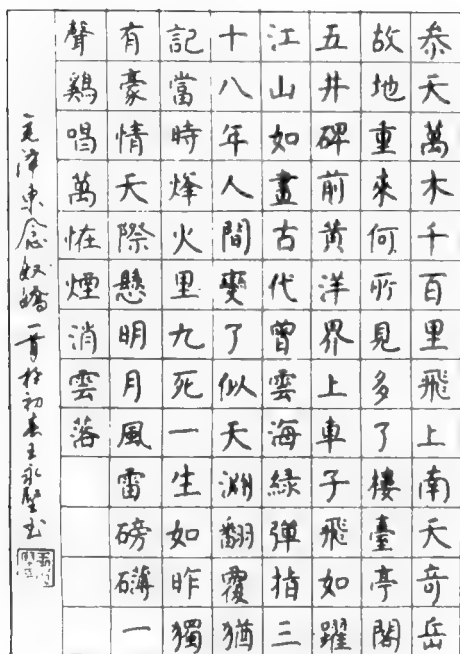 参天萬木千百里飛上南天奇岳
故地重來何所見多了樓臺亭閣
五井碑前黄洋界上車子飛如躍
江山如畫古代曾雲海綠彈指三
十八年人間變了似天淵翻覆猶
記當時烽火里九死一生如昨獨
有豪情天際懸明月風雷磅礴一
聲鷄唱萬恠煙消雲落
毛泽東念奴嬌一首於初春王永堅书